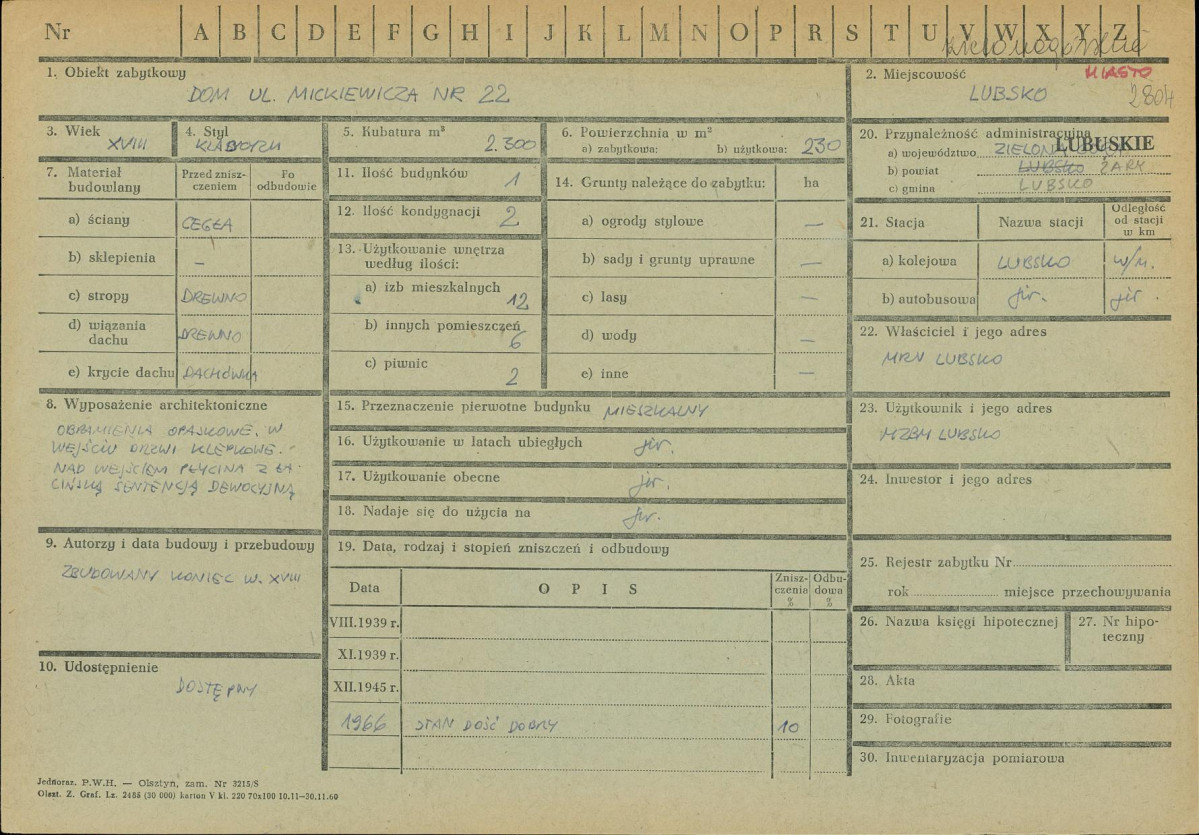 Nr A B C D E F G H I J K L M N O P R S T U V W X Y Z
1. Obiekt zabytkowy
DOM UL. MICKIEWICZA NR 22
2. Miejscowość
MIASTO
LUBSKO
2804
3. Wiek
XVIII
4. Styl
5. Kubatura m³
2.300
6. Powierzchnia w m²
a) zabytkowa: b) użytkowa: 230
7. Materiał budowlany
Przed zniszczeniem
Po odbudowie
a) ściany CEGŁA
b) sklepienia –
c) stropy DREWNO
d) wiązania dachu DREWNO
e) krycie dachu DACHÓWKA
8. Wyposażenie architektoniczne
OBRAMIENIA OPASKOWE. W
WEJŚCIU DRZWI KLEPKOWE.
NAD WEJŚCIEM PŁYCINA Z ŁA-
CIŃSKĄ SENTENCJĄ DEWOCYJNĄ
9. Autorzy i data budowy i przebudowy
ZBUDOWANY KONIEC W. XVIII
10. Udostępnienie
DOSTĘPNY
11. Ilość budynków 1
12. Ilość kondygnacji 2
13. Użytkowanie wnętrza
według ilości:
a) izb mieszkalnych 12
b) innych pomieszczeń 6
c) piwnic 2
14. Grunty należące do zabytku: ha
a) ogrody stylowe –
b) sady i grunty uprawne –
c) lasy –
d) wody –
e) inne –
15. Przeznaczenie pierwotne budynku MIESZKALNY
16. Użytkowanie w latach ubiegłych j.w.
17. Użytkowanie obecne j.w.
18. Nadaje się do użycia na j.w.
19. Data, rodzaj i stopień zniszczeń i odbudowy
Data OPIS Zniszczenia % Odbudowa %
VIII.1939 r.
XI.1939 r.
XII.1945 r.
1966 STAN DOŚĆ DOBRY 10
20. Przynależność administracyjna
LUBUSKIE
a) województwo
b) powiat LUBSKO ŻARY
c) gmina LUBSKO
21. Stacja Nazwa stacji Odległość od stacji w km
a) kolejowa LUBSKO w/m.
b) autobusowa j.w. j.w.
22. Właściciel i jego adres
MRN LUBSKO
23. Użytkownik i jego adres
MZBM LUBSKO
24. Inwestor i jego adres
25. Rejestr zabytku Nr
rok miejsce przechowywania
26. Nazwa księgi hipotecznej
27. Nr hipoteczny
28. Akta
29. Fotografie
30. Inwentaryzacja pomiarowa
Jednoraz. P.W.H. — Olsztyn, zam. Nr 3215/S
Olszt. Z. Graf. Lz. 2455 (30 000) karton V kl. 220 70x100 10.11—30.11.60